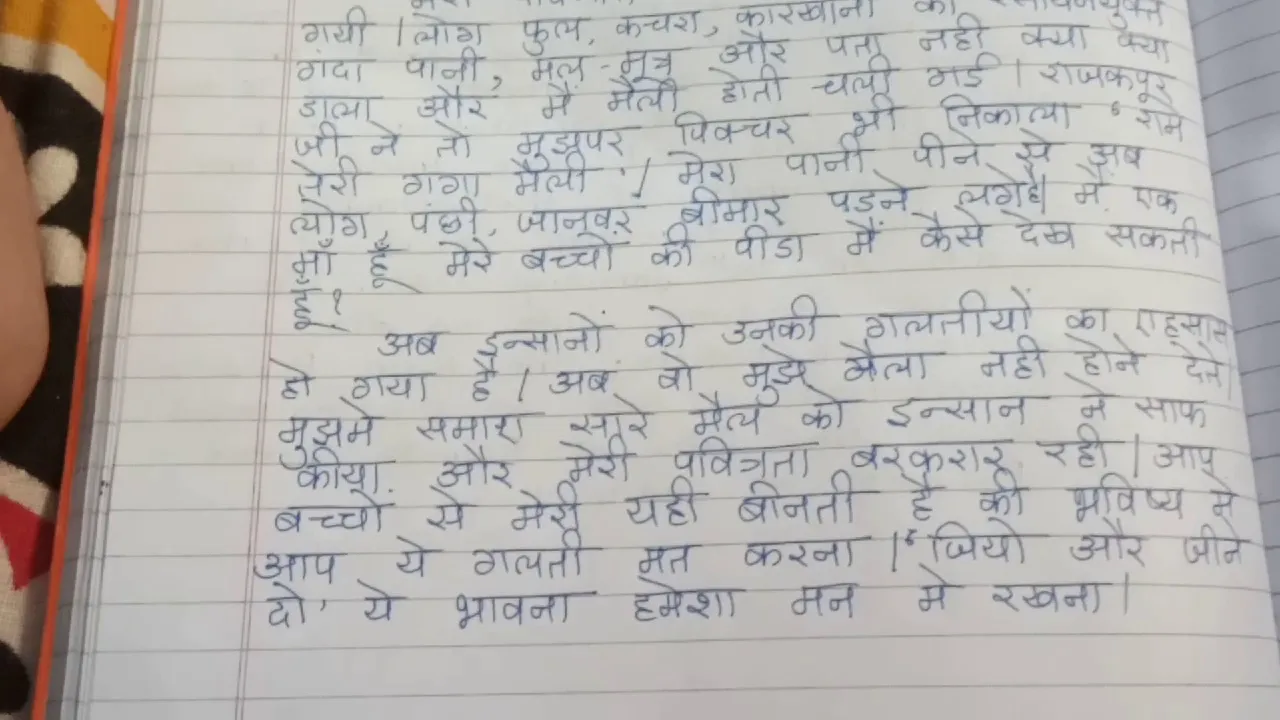 मेरा
गयी । लोग फुल, कचरा, कारखानो का रसायनयुक्त
गंदा पानी, मल-मूत्र और पता नही क्या क्या
डाला और मैं मैली होती चली गई । राजकपूर
जी ने तो मुझपर पिक्चर भी निकाला 'राम
तेरी गंगा मैली' । मेरा पानी पीने से अब
लोग, पंछी, जानवर बीमार पडने लगे है। मैं एक
माँ हूँ मेरे बच्चो की पीडा मैं कैसे देख सकती
हूँ?
अब इन्सानों को उनकी गलतीयों का एहसास
हो गया है । अब वो मुझे मैला नही होने देते।
मुझमे समाए सारे मैल को इन्सान ने साफ
कीया और मेरी पवित्रता बरकरार रही । आप
बच्चों से मेरी यही बीनती है की भविष्य मे
आप ये गलती मत करना । 'जियो और जीने
दो' ये भावना हमेशा मन मे रखना ।